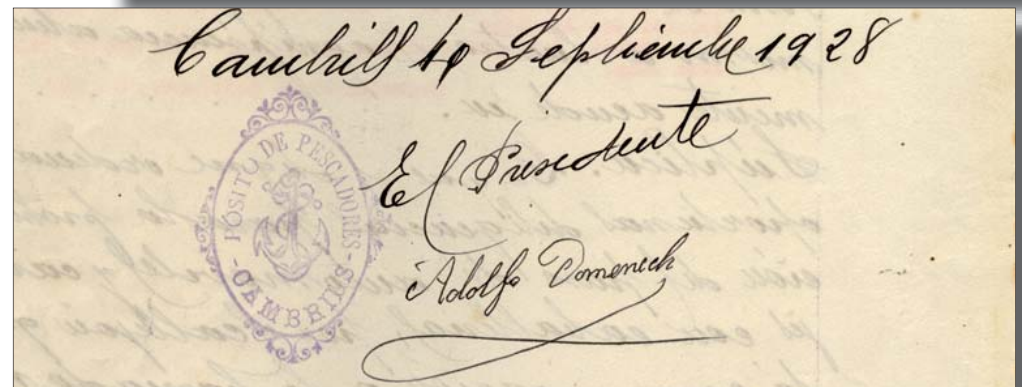 Cambrils Septiembre 1928
El Presidente
Adolfo Domenech
POSITO DE PESCADORES
- CAMBRILS -